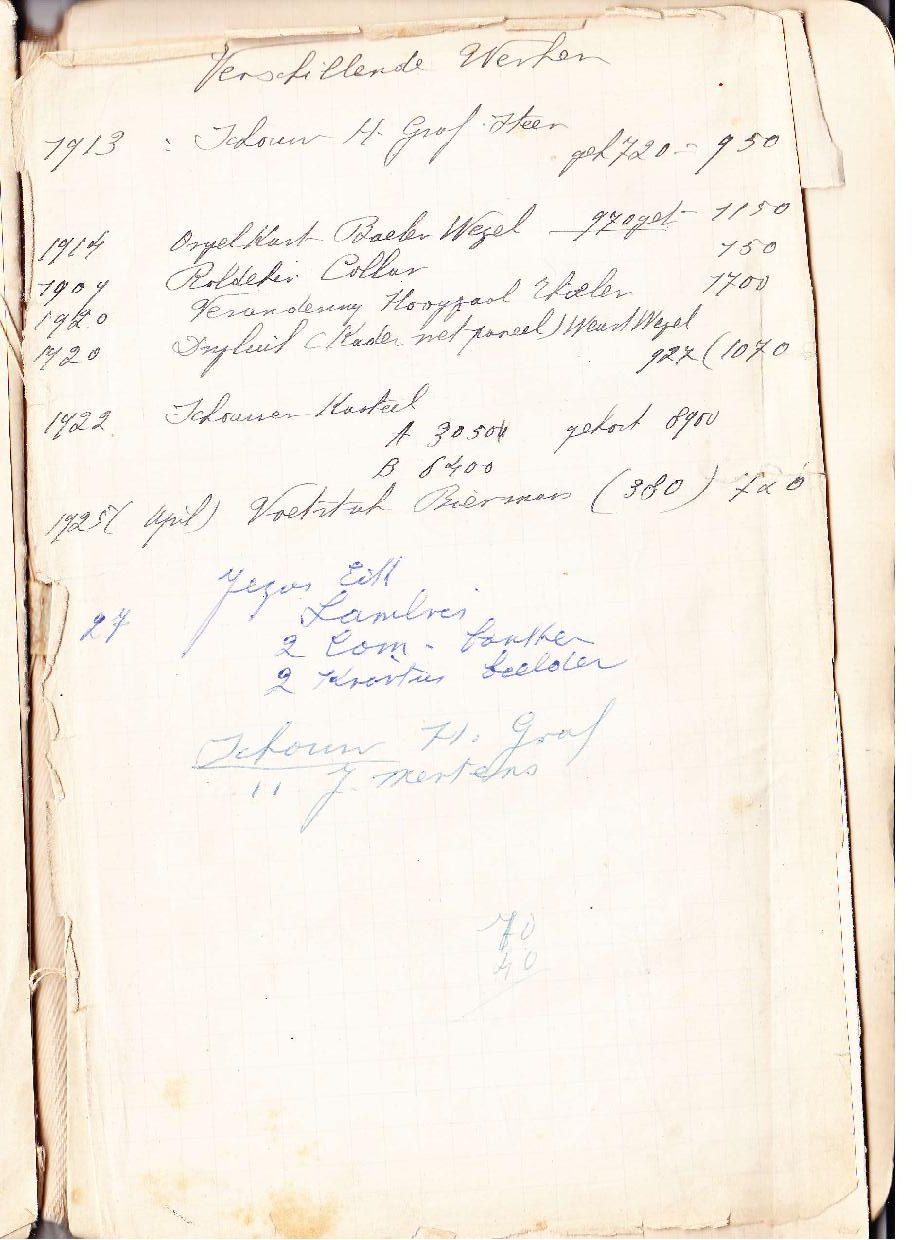 Verschillende Werken
1913 : Schouw H. Graf Heer
gek 720 = 950
1914 Orgelkast Baeler Wezel 970 get 1150
1909 Collar 750
1920 Verandering Hoogzaal 1700
1920 (Kader net paneel) Weust Wezel
927 (1070
1922 Schouwen Kasteel
A 30500 gekort 8900
B 6400
1925 (April) Voetstuk Biermans (380) 720
Jezus Eik
27 Lambrei
2 Com - banken
2 Kruistus beelden
Schouw H. Graf
" J. Mertens
70
40